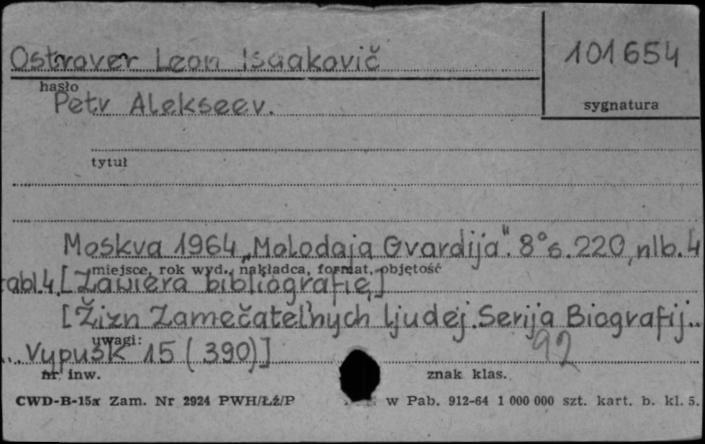 Ostrover Leon Isaakovič
101654
hasło
sygnatura
Petr Alekseev.
tytuł
Moskva 1964 „Molodaja Gvardija". 8° s. 220, nlb. 4
miejsce, rok wyd., nakładca, format, objętość
tabl. 4. [Zawiera bibliografię]
[Žizn Zamečatel'nych ljudej. Serija Biografij..
uwagi:
.. Vypusk 15 (390)]
92
nr inw.
znak klas.
CWD-B-15x Zam. Nr 2924 PWH/Łź/P
w Pab. 912-64 1 000 000 szt. kart. b. kl. 5.